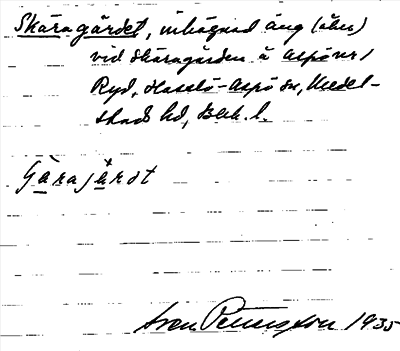 Skäragärdet, inhägnad äng (åker)
vid skäragården å Aspön,
Ryd, Hasslö-Aspö sn, Medel-
stads hd, Blek. l.
Sven Pettersson 1935